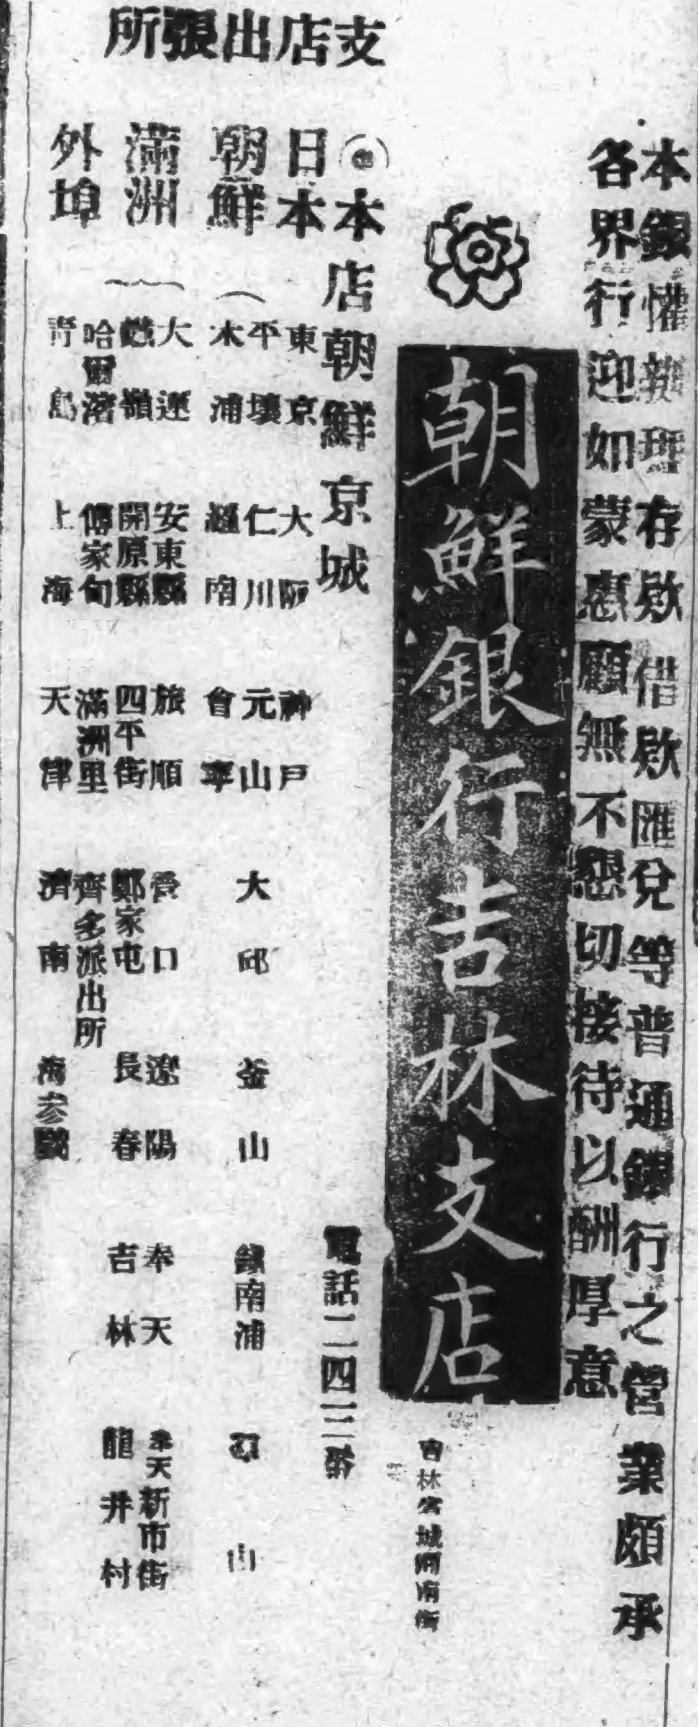 本銀懽辦理存欵借欵匯兌等普通銀行之營業頗承
各界行迎如蒙惠顧無不懇切接待以酬厚意
朝鮮銀行吉林支店
吉林省城河南街
本店朝鮮京城
電話二四二
支店出張所
日本 東京 大阪 神戶
朝鮮 平壤 仁川 元山 大邱 釜山 鎮南浦
木浦 南 會寧
滿洲 大連 安東縣 旅順 營口 遼陽 奉天 奉天新市街
鐵嶺 開原縣 四平街 鄭家屯 長春 吉林 龍井村
哈爾濱 傅家甸 滿洲里 齊多派出所
外埠 青島 上海 天津 濟南 海參